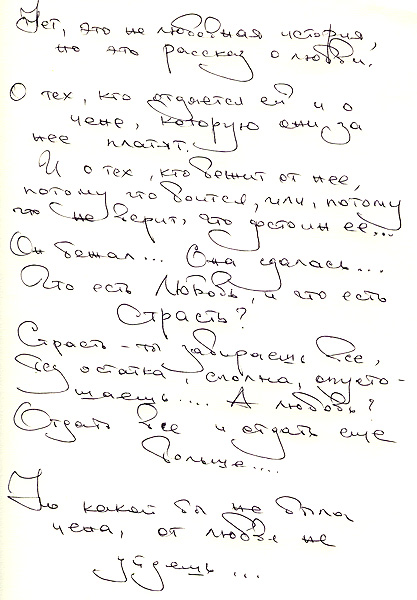 Нет, это не любовная история,
но это рассказ о любви.
О тех, кто отдается ей и о
цене, которую они за
нее платят.
И о тех, кто бежит от нее,
потому что боится, или, потому
что не верит, что достоин ее...
Он бежал... Она сдалась...
Что есть Любовь, и что есть
Страсть?
Страсть - ты забираешь все,
без остатка, сполна, опусто-
шаешь.... А любовь?
Отдать все и отдать еще
больше....
Но какой бы не была
цена, от любви не
уйдешь...